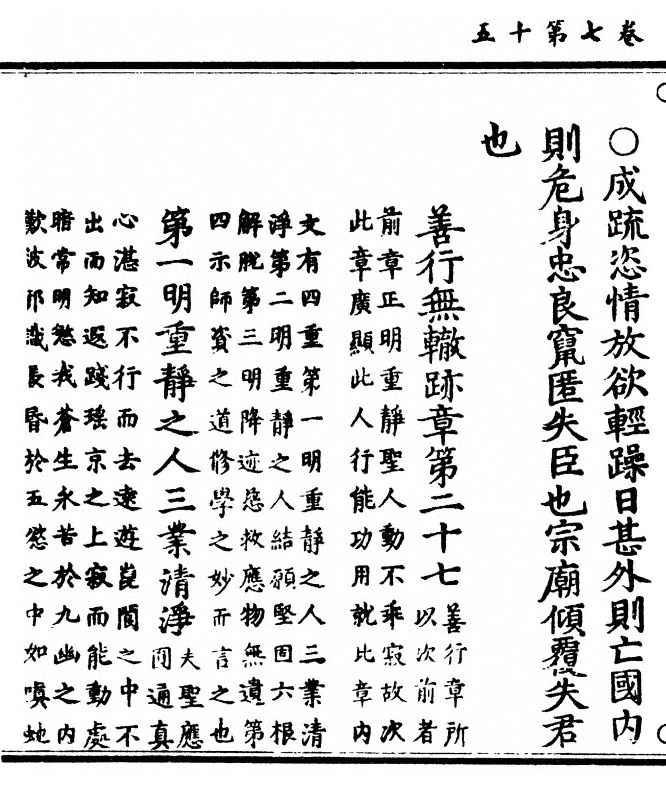 卷七第十五
○成疏恣情放欲輕躁日甚外則亡國内
則危身忠良竄匿失臣也宗廟傾覆失君
也
善行無轍跡章第二十七
善行章所
以次前者
前章正明重靜聖人動不乖寂故次
此章廣顯此人行能功用就此章内
文有四重第一明重靜之人三業清
淨第二明重靜之人結願堅固六根
解脫第三明降迹慈救應物無遺第
四示師資之道修學之妙而言之也
第一明重靜之人三業清淨
夫聖應
冏通真
心湛寂不行而去遠遊崑閬之中不
出而知返踐瑤京之上寂而能動處
暗常明愍我蒼生永苦於九幽之内
歎波邪識長昏於五慾之中如嗔虵